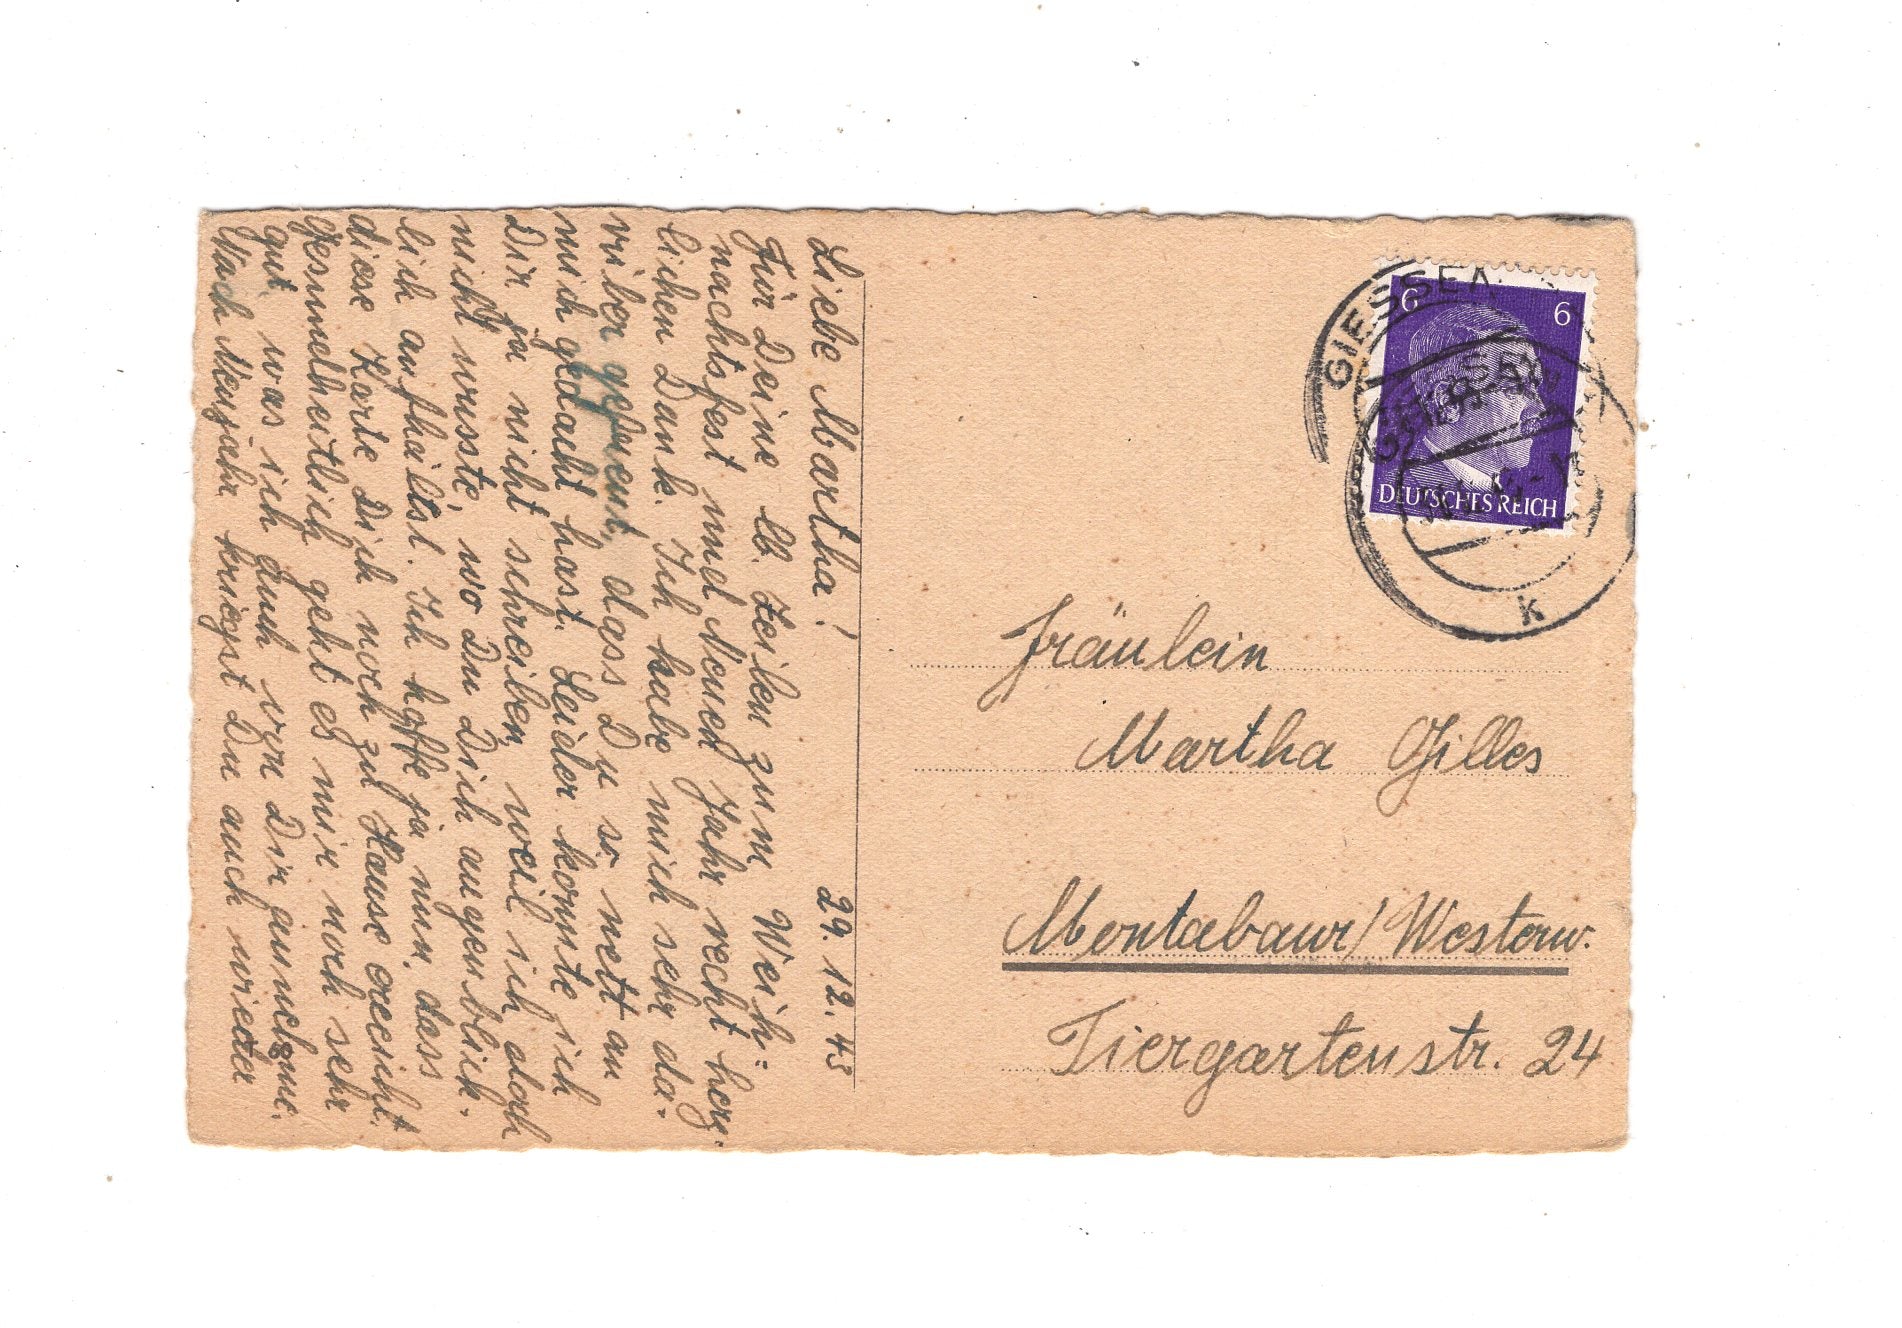 Liebe Martha! 29. 12. 43
Für Deine lb. Zeilen zum Weih-
nachtsfest und Neuen Jahr recht herz-
lichen Dank. Ich habe mich sehr da-
rüber gefreut, dass Du so nett an
mich gedacht hast. Leider konnte ich
Dir ja nicht schreiben, weil ich doch
nicht wusste, wo Du Dich augenblick-
lich aufhältst. Ich hoffe ja nun, dass
diese Karte Dich noch zu Hause erreicht.
Gesundheitlich geht es mir noch sehr
gut, was ich auch von Dir annehme.
Nach Neujahr kriegst Du auch wieder
GIESSEN
6 6
DEUTSCHES REICH
k
Fräulein
Martha Gilles
Montabaur/Westerw.
Tiergartenstr. 24